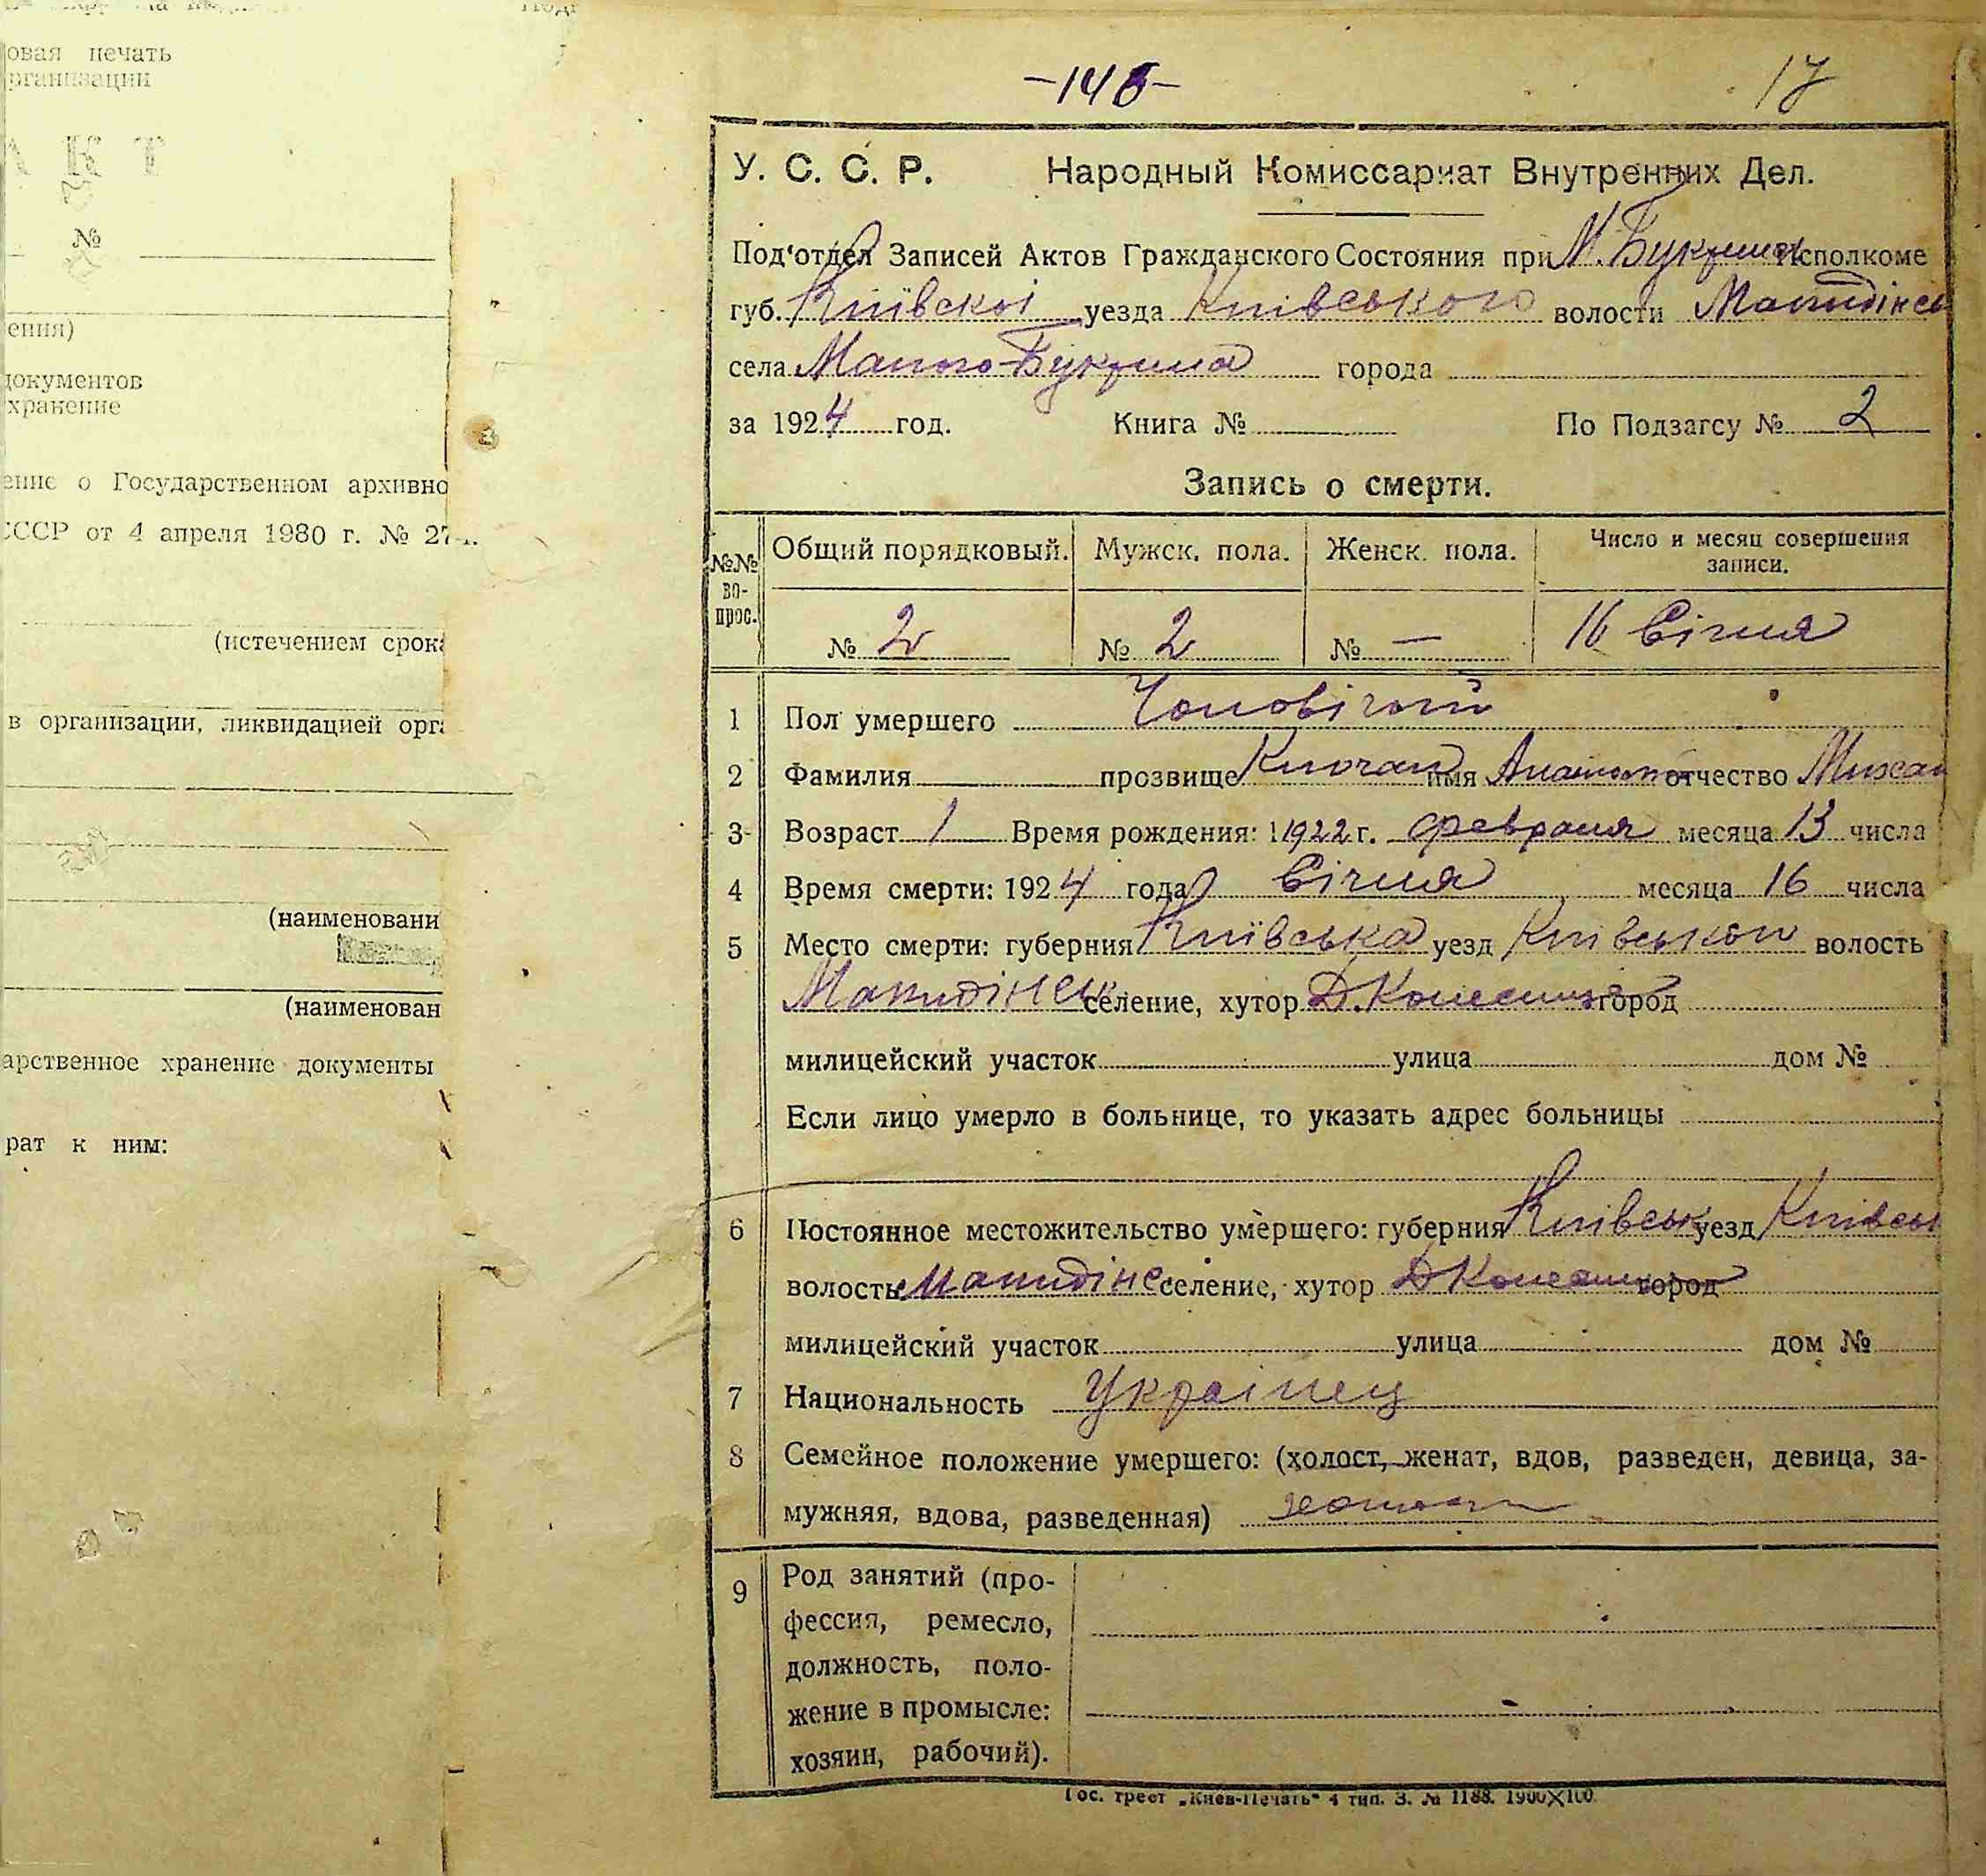 овая печать
рганизации
АКТ
№
ения)
документов
хранение
ение о Государственном архивно
СССР от 4 апреля 1980 г. № 27
(истечением срока
в организации, ликвидацией орга
(наименовани
(наименован
арственное хранение документы
рат к ним:
-146-
17
У. С. С. Р. Народный Комиссариат Внутренних Дел.
Под'отдел Записей Актов Гражданского Состояния при М. Букрин Исполкоме
губ. Київскоі уезда Київського волости Макидінсь
села Малого-Букрина города
за 1924 год. Книга № По Подзагсу № 2
Запись о смерти.
№№ во-прос. Общий порядковый. Мужск. пола. Женск. пола. Число и месяц совершения записи.
№ 2 № 2 № — 16 Січня
1 Пол умершего Чоловічий
2 Фамилия прозвище Клочан имя Анатол отчество Михай
3 Возраст 1 Время рождения: 1922 г. февраля месяца 13 числа
4 Время смерти: 1924 года Січня месяца 16 числа
5 Место смерти: губерния Київська уезд Київськой волость
Макидінск селение, хутор Д. город
милицейский участок улица дом №
Если лицо умерло в больнице, то указать адрес больницы
6 Постоянное местожительство умершего: губерния Київськ уезд Київськ
волость Макидінс селение, хутор Д город
милицейский участок улица дом №
7 Национальность Українец
8 Семейное положение умершего: (холост, женат, вдов, разведен, девица, за-
мужняя, вдова, разведенная) холост
9 Род занятий (про-
фессия, ремесло,
должность, поло-
жение в промысле:
хозяин, рабочий).
Гос. трест „Киев-Печать" 4 тип. З. № 1188. 1900×100.